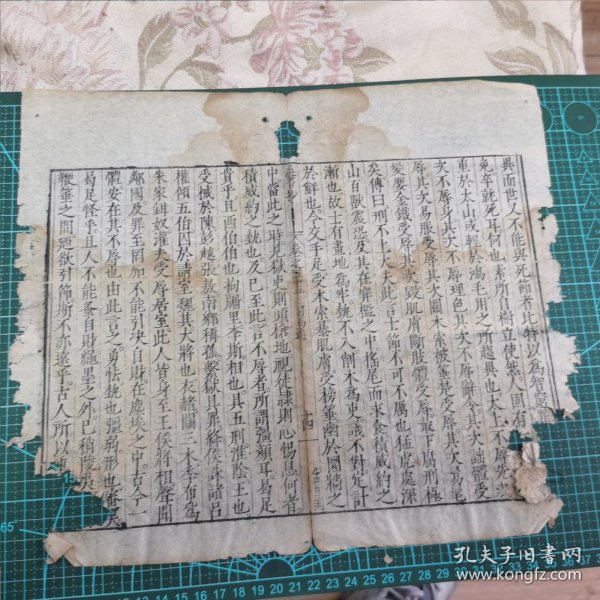 異而世又不能與死節者比特以為智窮罪
免卒就死耳何也素所自樹立使然人固有
重於太山或輕於鴻毛用之所趨異也太上不辱先其
次不辱身其次不辱理色其次不辱辭令其次詘體受
辱其次易服受辱其次關木索被箠楚受辱其次鬄毛
髮嬰金鐵受辱其次毀肌膚斷肢體受辱最下腐刑極
矣傳曰刑不上大夫此言士節不可不厲也猛虎處深
山百獸震恐及其在穽檻之中搖尾而求食積威約之
漸也故士有畫地為牢勢不入削木為吏議不對定計
於鮮也今交手足受木索暴肌膚受榜箠幽於圜牆之
卷
十四
中當此之時見獄吏則頭槍地視徒隸則心惕息何者
積威約之勢也及已至此言不辱者所謂彊顏耳曷足
貴乎且西伯伯也拘牖里李斯相也具五刑淮陰王也
受械於陳彭越張敖南鄉稱孤繫獄具罪絳侯誅諸呂
權傾五伯囚於請室魏其大將也衣赭關三木季布為
朱家鉗奴灌夫受辱居室此人皆身至王侯將相聲聞
鄰國及罪至罔加不能引決自財在塵埃之中古今一
體安在其不辱也由此言之勇怯勢也彊弱形也審矣
曷足怪乎且人不能蚤自財繩墨之外已稍陵夷
鞭箠之間廼欲引節斯不亦遠乎古人所以
孔夫子旧書网
www.kongfz.com